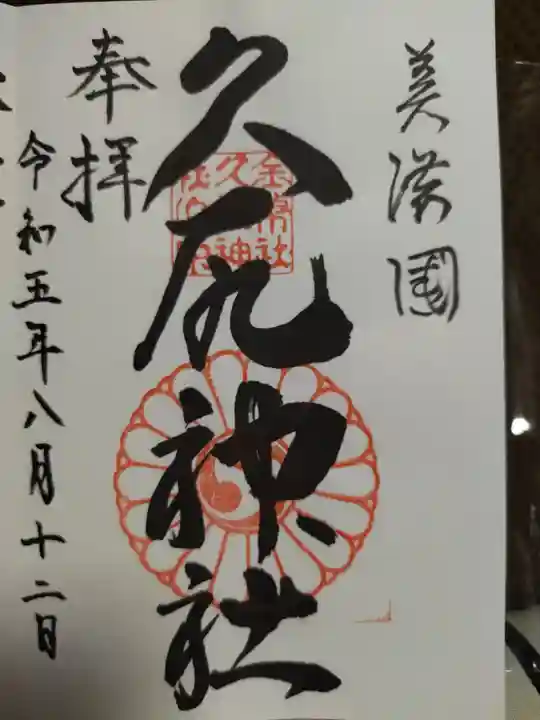 美濃國
久尻神社
奉拝
令和五年八月十二日